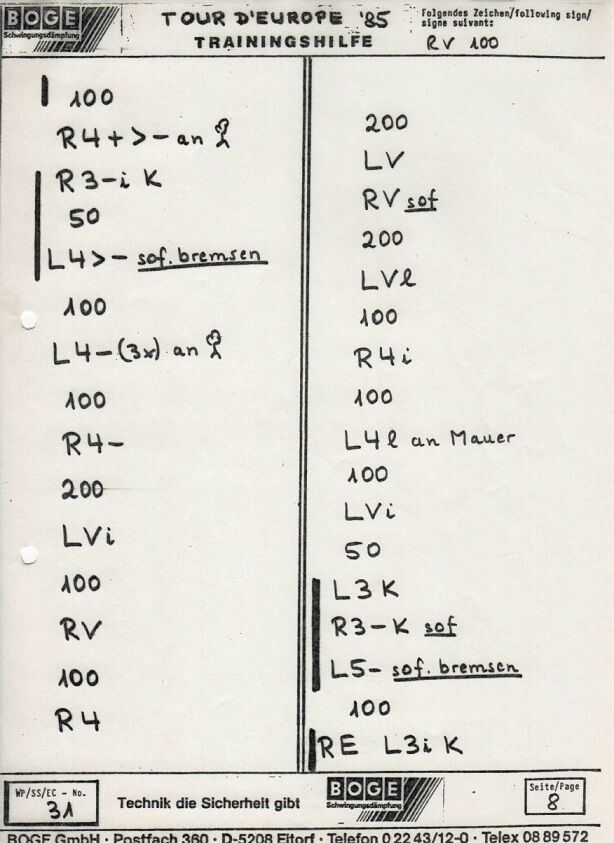 BOGE
Schwingungsdämpfung
TOUR D'EUROPE '85
TRAININGSHILFE
Folgendes Zeichen/following sign/
signe suivant:
RV 100
100
R4+>- an
R3-i K
50
L4>- sof. bremsen
100
L4-(3x) an
100
R4-
200
LVi
100
RV
100
R4
200
LV
RV sof
200
LVl
100
R4i
100
L4l an Mauer
100
LVi
50
L3 K
R3-K sof
L5- sof. bremsen
100
RE L3i K
WP/SS/EC - No.
31
Technik die Sicherheit gibt
BOGE
Schwingungsdämpfung
Seite/Page
8
BOGE GmbH · Postfach 360 · D-5208 Eitorf · Telefon 0 22 43/12-0 · Telex 08 89 572